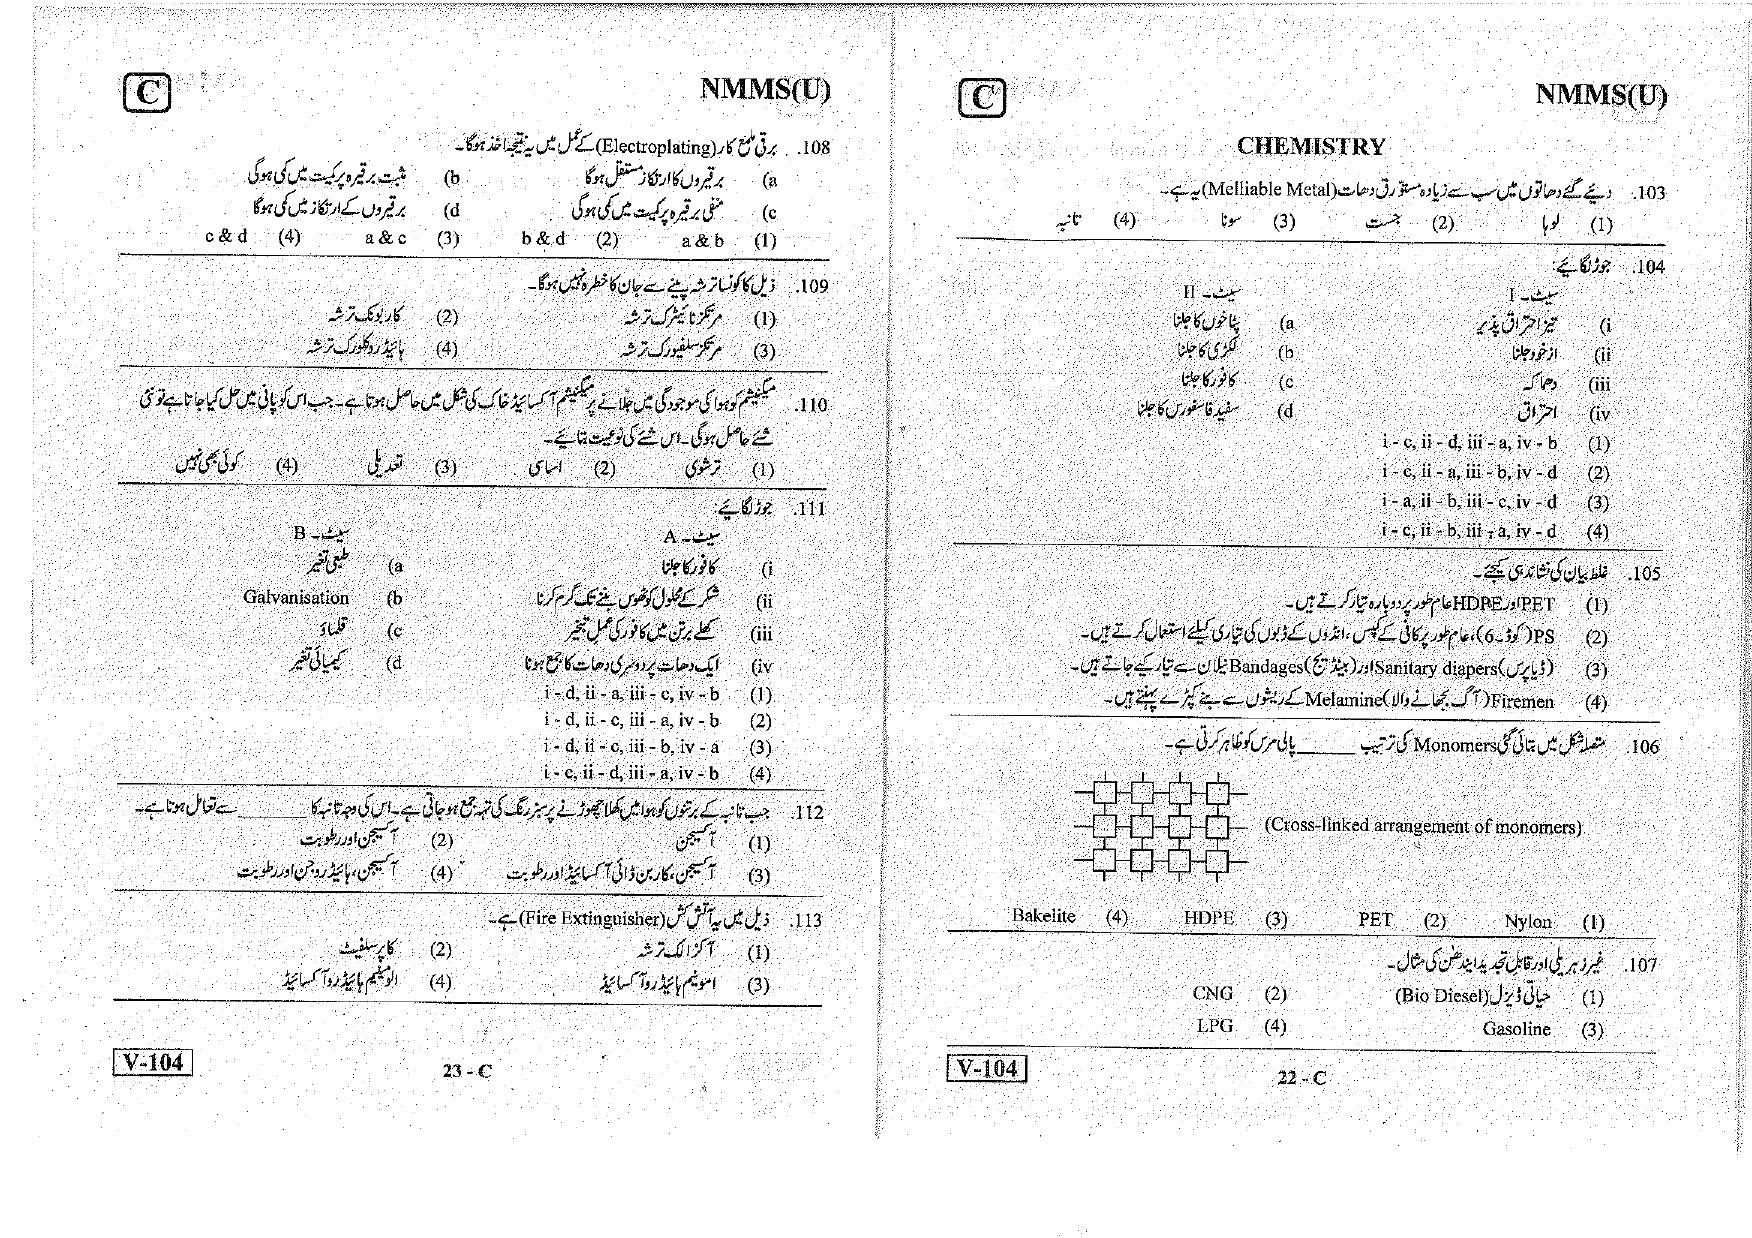 NMMS(U)
C
CHEMISTRY
103. دئے گئے دھاتوں میں سب سے زیادہ متورق دھات (Melliable Metal) یہ ہے۔
(1) لوہا (2) جست (3) سونا (4) تانبہ
104. جوڑ لگائیے:
سیٹ۔ I سیٹ۔ II
i) تیز احتراق پذیر a) پٹاخوں کا جلنا
ii) ازخود جلنا b) لکڑی کا جلنا
iii) دھماکہ c) کافور کا جلنا
iv) احتراق d) سفید فاسفورس کا جلنا
(1) i - c, ii - d, iii - a, iv - b
(2) i - c, ii - a, iii - b, iv - d
(3) i - a, ii - b, iii - c, iv - d
(4) i - c, ii - b, iii - a, iv - d
105. غلط بیان کی نشاندہی کیجئے۔
(1) PET اور HDPE عام طور پر دوبارہ تیار کرتے ہیں۔
(2) PS (کوڈ۔6)، عام طور پر کافی کے کپس، انڈوں کے ڈبوں کی تیاری کیلئے استعمال کرتے ہیں۔
(3) Sanitary diapers (ڈیاپرس) اور Bandages (بینڈیج) نیلان سے تیار کیے جاتے ہیں۔
(4) Firemen (آگ بجھانے والا) Melamine کے ریشوں سے بنے کپڑے پہنتے ہیں۔
106. متصلہ شکل میں بتائی گئی Monomers کی ترتیب ______ پالی مرس کو ظاہر کرتی ہے۔
(Cross-linked arrangement of monomers)
(1) Nylon (2) PET (3) HDPE (4) Bakelite
107. غیر زہریلی اور قابل تجدید ایندھن کی مثال۔
(1) حیاتی ڈیزل (Bio Diesel) (2) CNG
(3) Gasoline (4) LPG
V-104
22 - C
NMMS(U)
C
108. برقی ملمع کار (Electroplating) کے عمل میں یہ نتیجہ اخذ ہوگا۔
a) برقیروں کا ارتکاز مستقل ہوگا b) مثبت برقیرہ پر کمیت میں کمی ہوگی
c) منفی برقیرہ پر کمیت میں کمی ہوگی d) برقیروں کے ارتکاز میں کمی ہوگا
(1) a & b (2) b & d (3) a & c (4) c & d
109. ذیل کا کونسا ترشہ پینے سے جان کا خطرہ نہیں ہوگا۔
(1) مرتکز نائیٹرک ترشہ (2) کاربونک ترشہ
(3) مرتکز سلفیورک ترشہ (4) ہائیڈروکلورک ترشہ
110. میگنیشیم کو ہوا کی موجودگی میں جلانے پر میگنیشیم آکسائیڈ خاک کی شکل میں حاصل ہوتا ہے۔ جب اس کو پانی میں حل کیا جاتا ہے تو نئی
شئے حاصل ہوگی۔ اس شئے کی نوعیت بتائیے۔
(1) ترشوی (2) اساسی (3) تعدیلی (4) کوئی بھی نہیں
111. جوڑ لگائیے:
سیٹ۔ A سیٹ۔ B
i) کافور کا جلنا a) طبعی تغیر
ii) شکر کے محلول کو ٹھوس بننے تک گرم کرنا b) Galvanisation
iii) کھلے برتن میں کافور کی عمل تبخیر c) قلماؤ
iv) ایک دھات پر دوسری دھات کا جمع ہونا d) کیمیائی تغیر
(1) i - d, ii - a, iii - c, iv - b
(2) i - d, ii - c, iii - a, iv - b
(3) i - d, ii - c, iii - b, iv - a
(4) i - c, ii - d, iii - a, iv - b
112. جب تانبہ کے برتنوں کو ہوا میں کھلا چھوڑنے پر سبز رنگ کی تہہ جمع ہو جاتی ہے۔ اس کی وجہ تانبہ کا ______ سے تعامل ہوتا ہے۔
(1) آکسیجن (2) آکسیجن اور رطوبت
(3) آکسیجن، کاربن ڈائی آکسائیڈ اور رطوبت (4) آکسیجن، ہائیڈروجن اور رطوبت
113. ذیل میں یہ آتش کش (Fire Extinguisher) ہے۔
(1) آکزالک ترشہ (2) کاپر سلفیٹ
(3) امونیم ہائیڈروآکسائیڈ (4) الومنیم ہائیڈروآکسائیڈ
V-104
23 - C